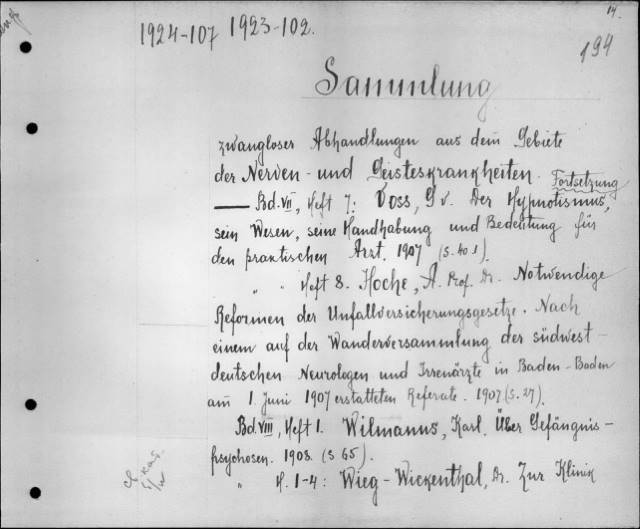 14.
1924-107 1923-102.
194
Sammlung
zwangloser Abhandlungen aus dem Gebiete
der Nerven- und Geisteskrankheiten. Fortsetzung
— Bd. VII, Heft 7: Voss, G v. Der Hypnotismus,
sein Wesen, seine Handhabung und Bedeutung für
den praktischen Arzt. 1907 (S. 40 1).
" " Heft 8. Hoche, A. Prof. Dr. Notwendige
Reformen der Unfallversicherungsgesetze. Nach
einem auf der Wanderversammlung der südwest-
deutschen Neurologen und Irrenärzte in Baden-Baden
am 1. Juni 1907 erstatteten Referate. 1907 (S. 27).
Bd. VIII, Heft 1. Wilmanns, Karl. Über Gefängnis-
psychosen. 1908. (S 65).
" H. 1-4: Wieg-Wickenthal, Dr. Zur Klinik